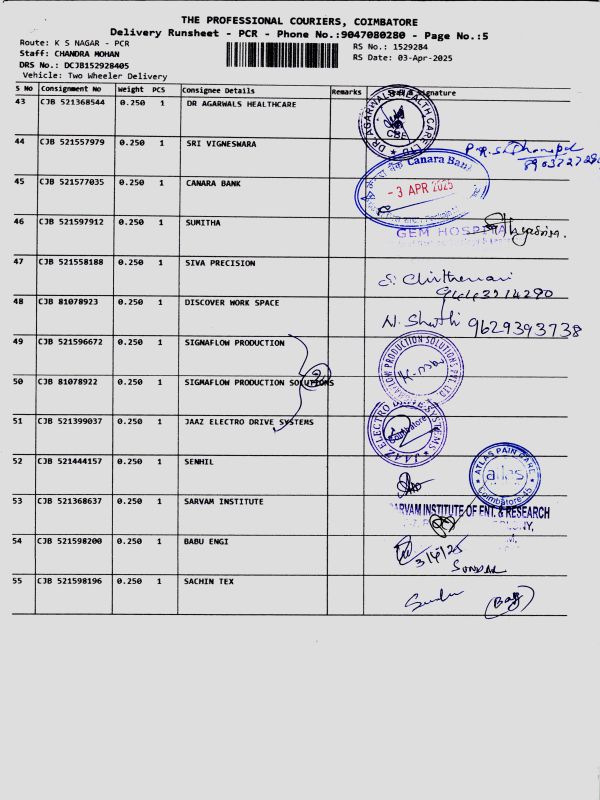 THE PROFESSIONAL COURIERS, COIMBATORE
Delivery Runsheet - PCR - Phone No.:9047080280 - Page No.:5
Route: K S NAGAR - PCR
RS No.: 1529284
Staff: CHANDRA MOHAN
RS Date: 03-Apr-2025
DRS No.: DCJB152928405
Vehicle: Two Wheeler Delivery
S No Consignment No Weight PCS Consignee Details Remarks & Signature
43 CJB 521368544 0.250 1 DR AGARWALS HEALTHCARE
DR. AGARWALS HEALTH CARE LTD
CBE
44 CJB 521557979 0.250 1 SRI VIGNESWARA
45 CJB 521577035 0.250 1 CANARA BANK
Canara Bank
- 3 APR 2025
46 CJB 521597912 0.250 1 SUMITHA
GEM HOSPITA
47 CJB 521558188 0.250 1 SIVA PRECISION
9443214290
48 CJB 81078923 0.250 1 DISCOVER WORK SPACE
N. Shathi 9629393738
49 CJB 521596672 0.250 1 SIGNAFLOW PRODUCTION
SIGNAFLOW PRODUCTION SOLUTIONS PVT. LTD
50 CJB 81078922 0.250 1 SIGNAFLOW PRODUCTION SOLUTIONS
2
51 CJB 521399037 0.250 1 JAAZ ELECTRO DRIVE SYSTEMS
JAAZ ELECTRO DRIVE SYSTEMS
Coimbatore
52 CJB 521444157 0.250 1 SENHIL
ATLAS PAIN CARE
atlas
Coimbatore-45
53 CJB 521368637 0.250 1 SARVAM INSTITUTE
SARVAM INSTITUTE OF ENT. & RESEARCH
54 CJB 521598200 0.250 1 BABU ENGI
3/4/25
SUNDAR
55 CJB 521598196 0.250 1 SACHIN TEX